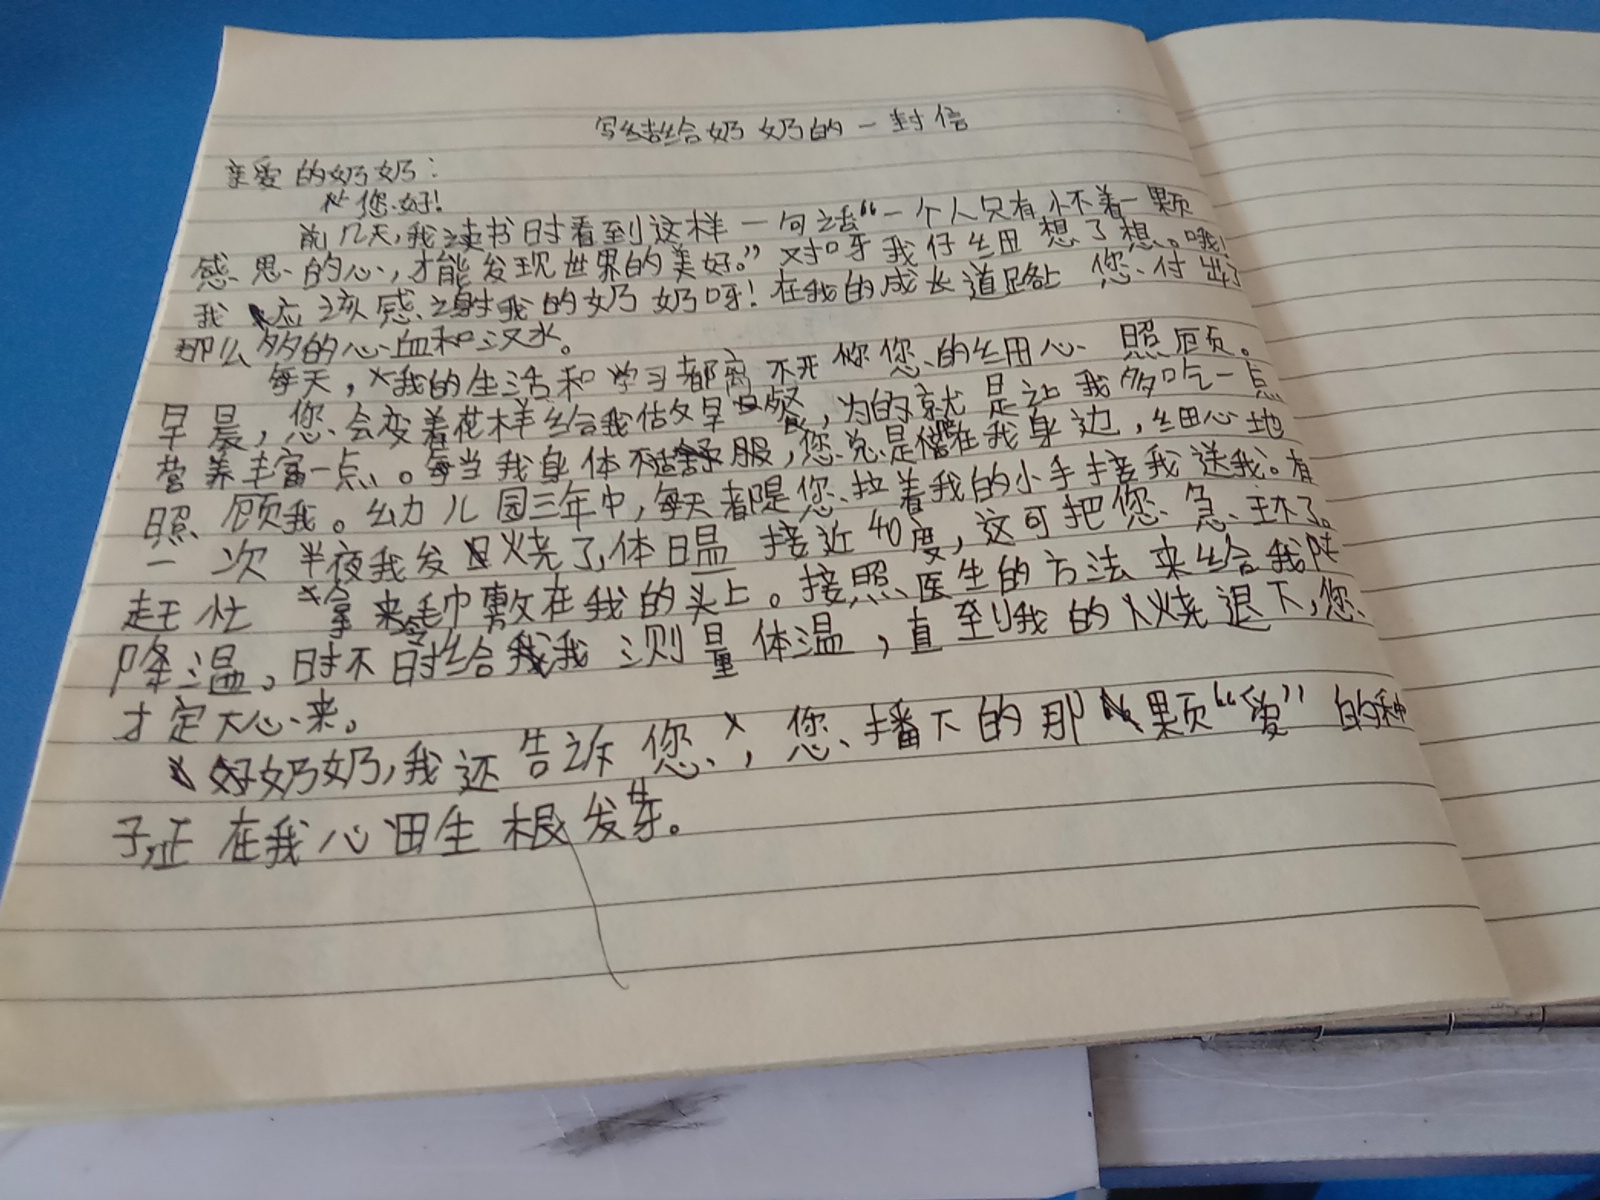 写给奶奶的一封信
亲爱的奶奶：
您好！
前几天，我读书时看到这样一句话“一个人只有怀着一颗
感恩的心，才能发现世界的美好。”对呀我仔细想了想。哦！
我应该感谢我的奶奶呀！在我的成长道路上您付出了
那么多的心血和汉水。
每天，我的生活和学习都离不开您的细心照顾。
早晨，您会变着花样给我做早餐，为的就是让我多吃一点
营养丰富一点。每当我身体不舒服，您总是陪在我身边，细心地
照顾我。幼儿园三年中，每天都是您拉着我的小手接我送我。有
一次半夜我发烧了，体温接近40度，这可把您急坏了。
赶忙拿来毛巾敷在我的头上。按照医生的方法来给我
降温。时不时给我测量体温，直到我的烧退下，您
才定下心来。
奶奶，我还告诉您，您播下的那颗“爱”的种
子，正在我心田生根发芽。